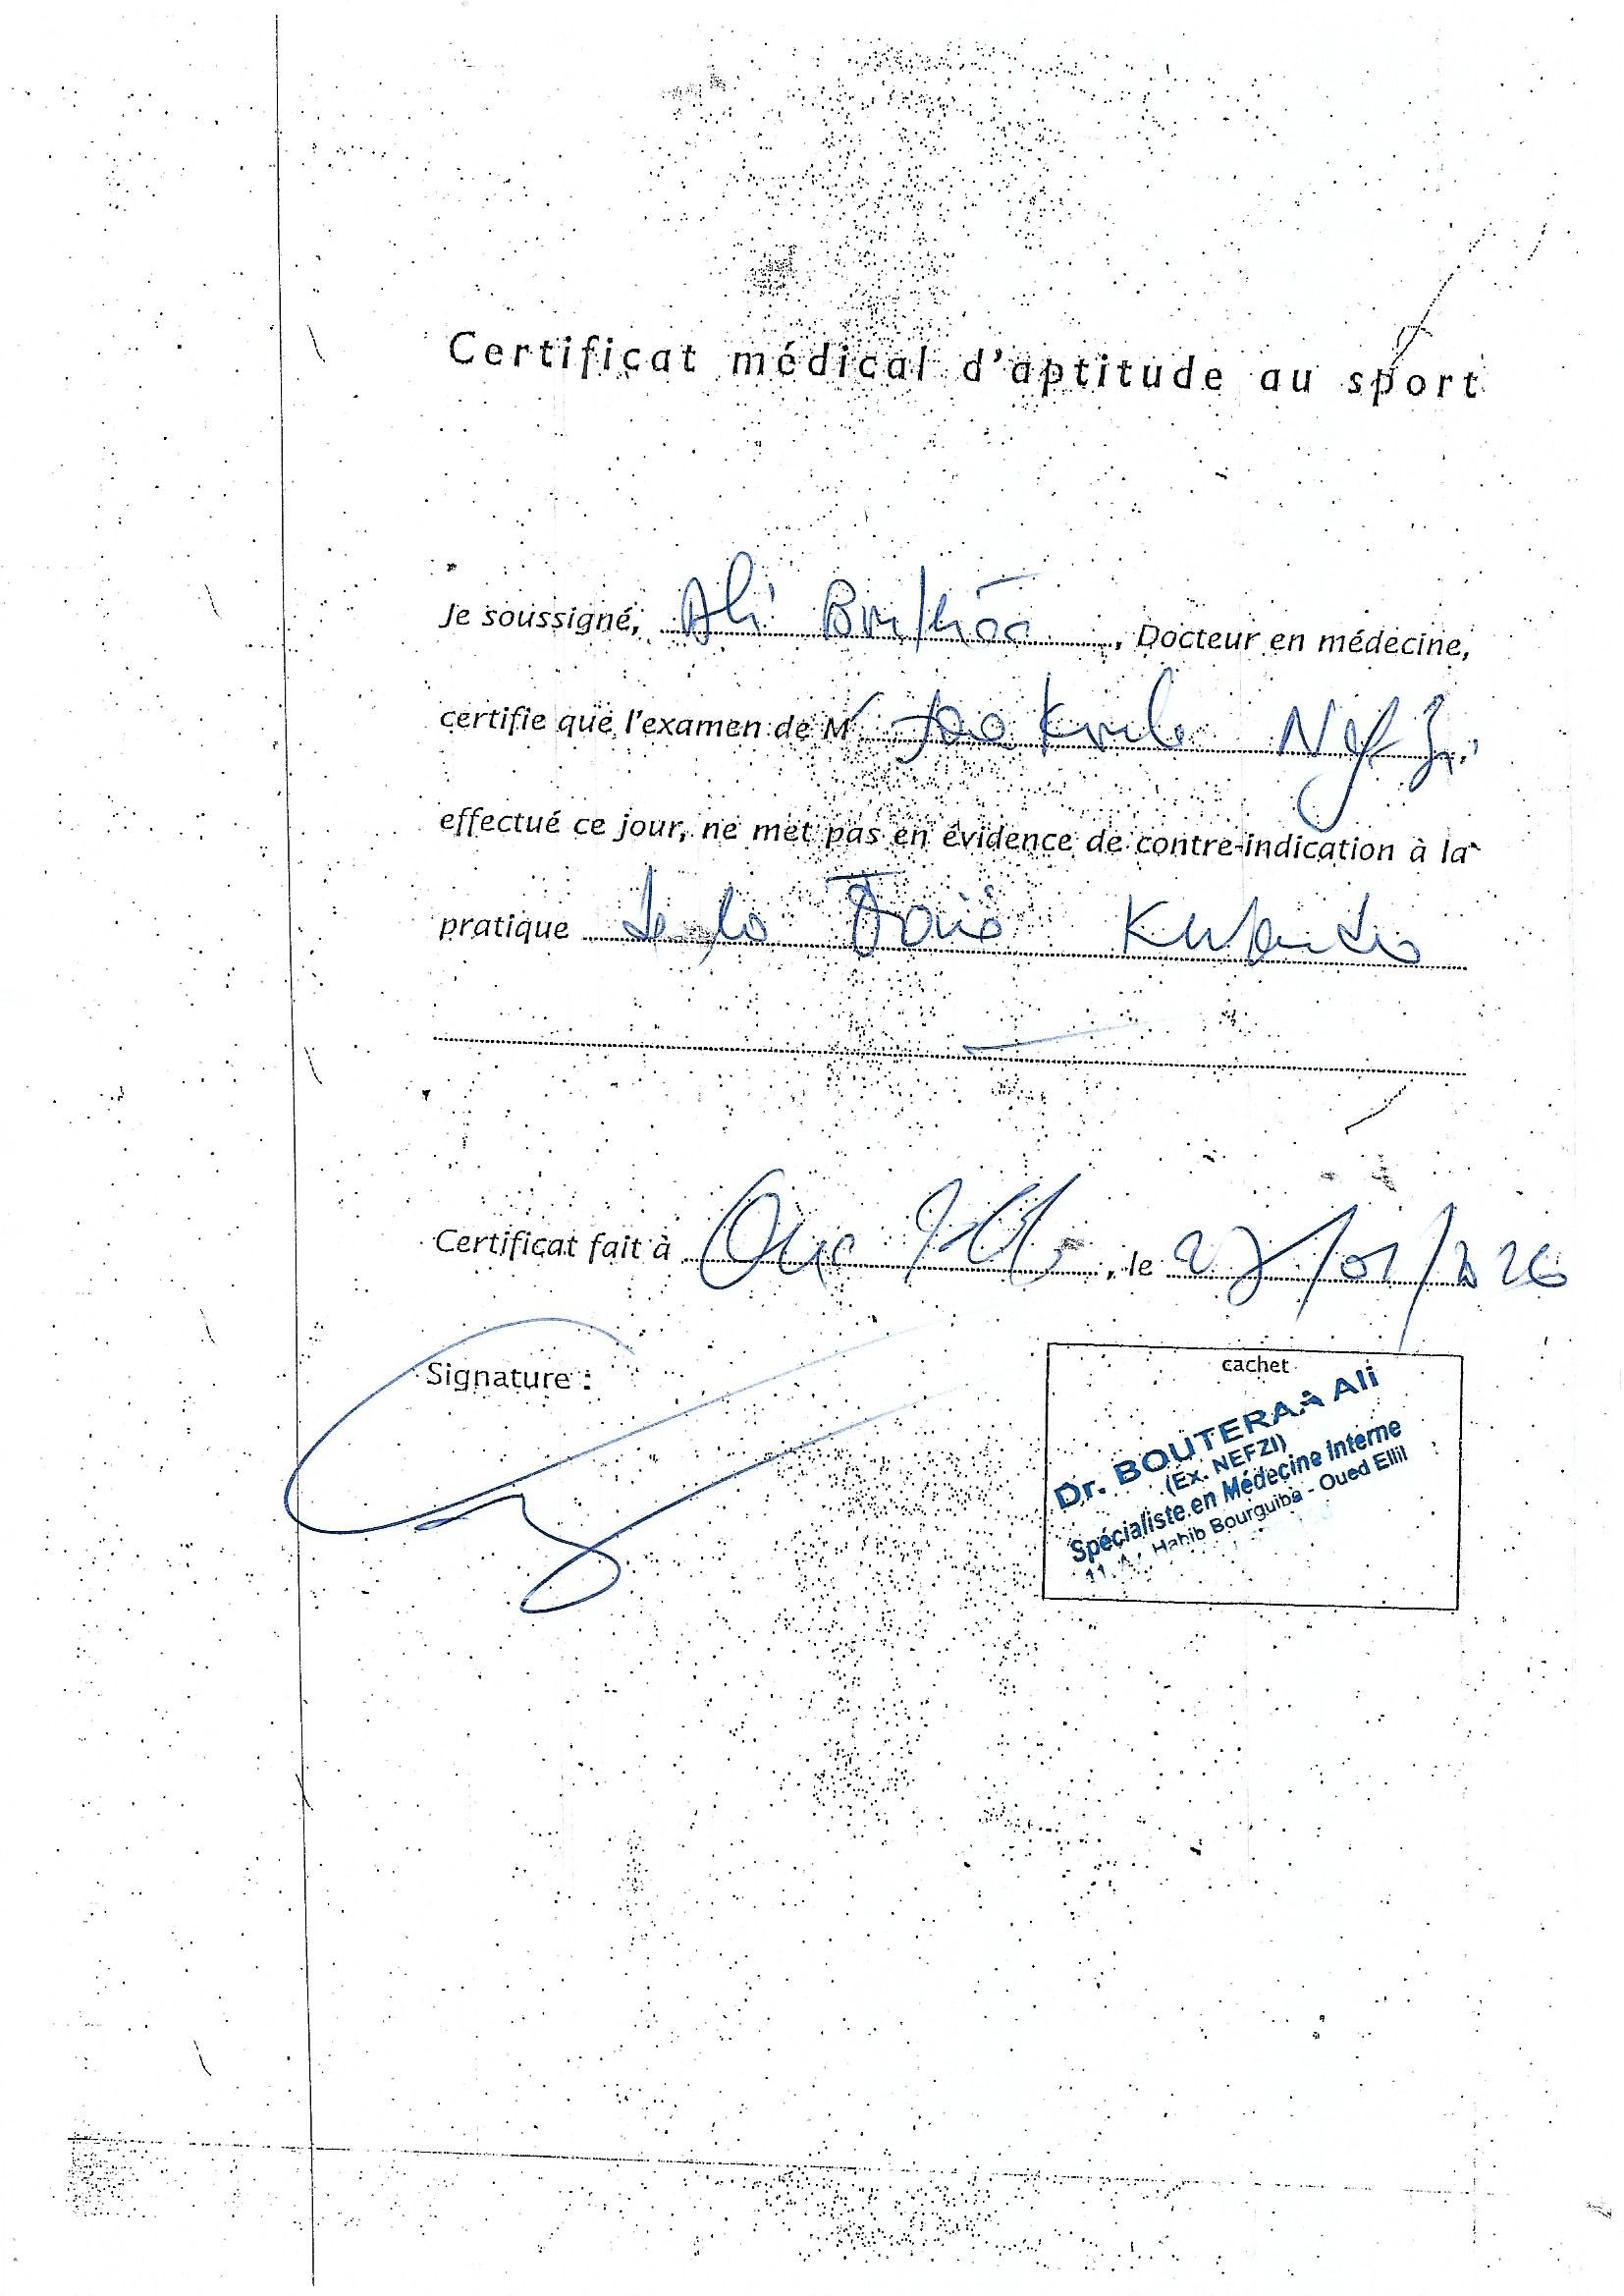 Certificat médical d'aptitude au sport
Je soussigné, Ali , Docteur en médecine,
certifie que l'examen de M
effectué ce jour, ne met pas en évidence de contre-indication à la
pratique de la
Certificat fait à , le 27/01/2026
Signature :
cachet
Dr. BOUTERAA Ali
(Ex. NEFZI)
Spécialiste en Médecine Interne
11, Av. Habib Bourguiba - Oued Ellil